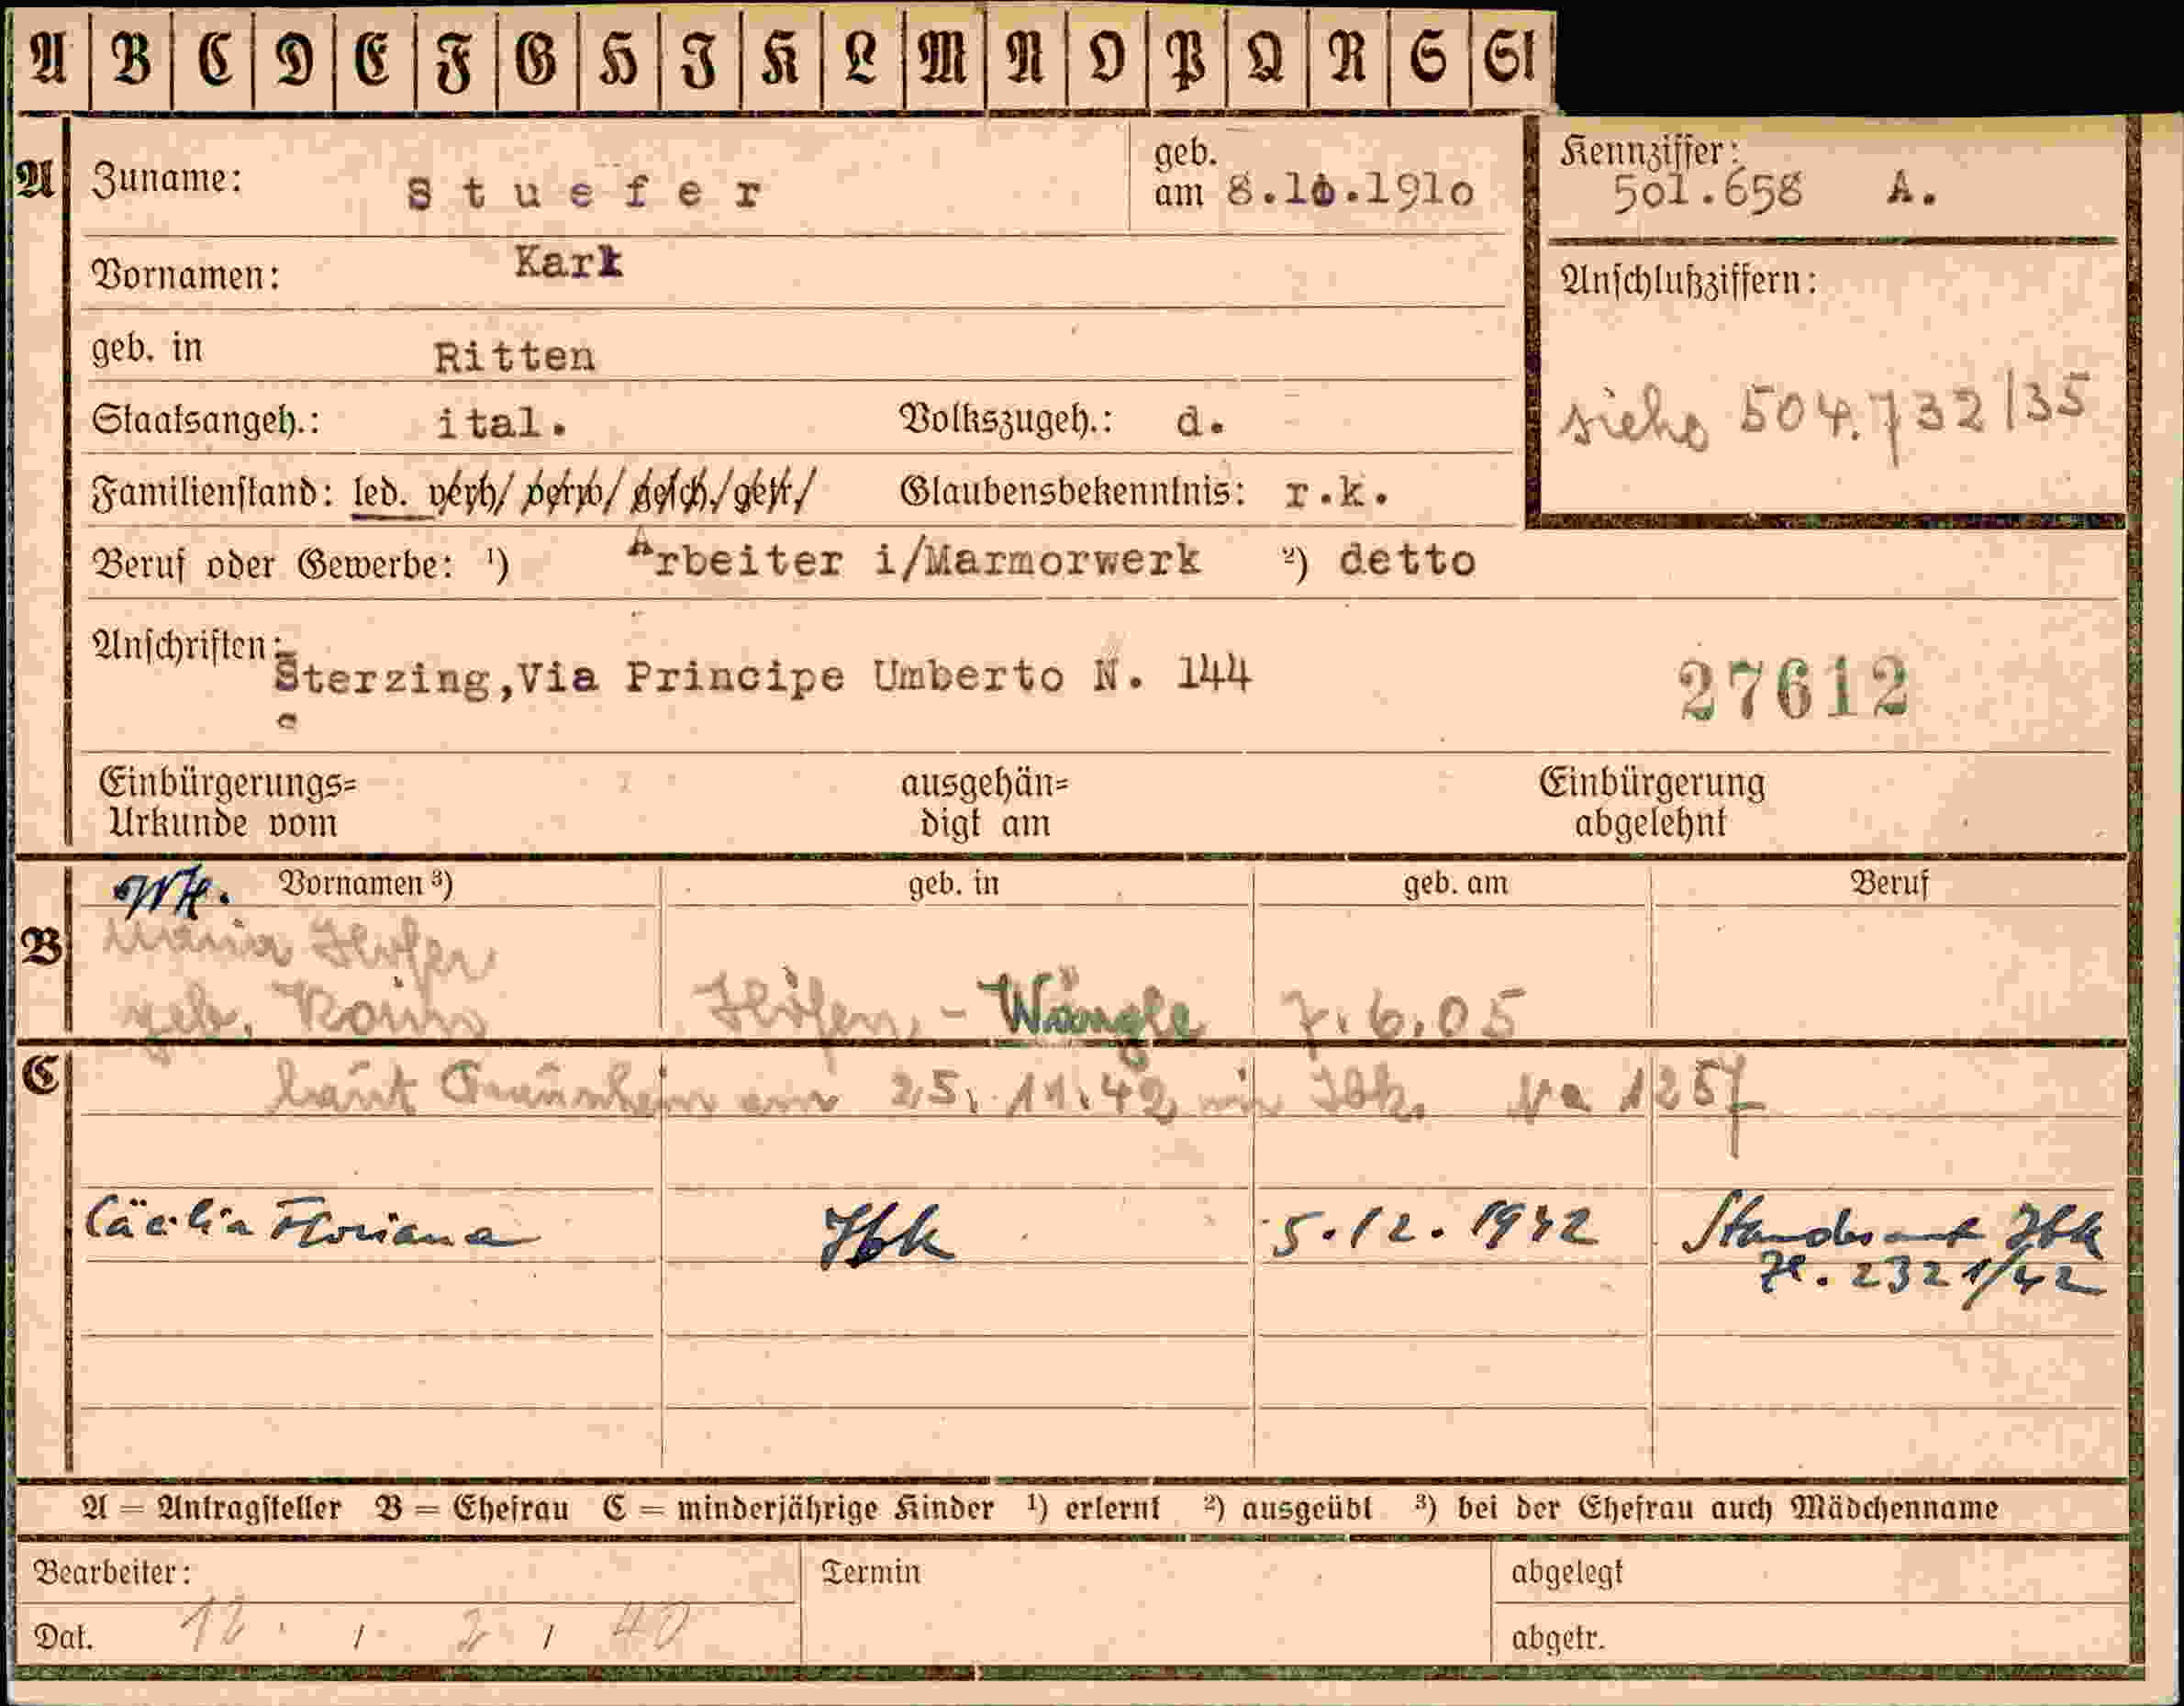 A B C D E F G H I K L M N O P Q R S St
A Zuname: Stuefer geb. am 8.10.1910 Kennziffer: 501.658 A.
Vornamen: Karl
Anschlußziffern:
geb. in Ritten
siehe 504.732/35
Staatsangeh.: ital. Volkszugeh.: d.
Familienstand: led. verh/ verw/ gesch./getr./ Glaubensbekenntnis: r.k.
Beruf oder Gewerbe: ¹) Arbeiter i/Marmorwerk ²) detto
Anschriften: Sterzing,Via Principe Umberto N. 144
27612
Einbürgerungs= ausgehän= Einbürgerung
Urkunde vom digt am abgelehnt
Vornamen ³) geb. in geb. am Beruf
B Maria Hofer
geb. Höfen - Wängle 7.6.05
C laut am 25.11.42 in Ibk. 1257
Cäcilia Floriana Ibk 5.12.1942 Standesamt Ibk
2321/42
A = Antragsteller B = Ehefrau C = minderjährige Kinder ¹) erlernt ²) ausgeübt ³) bei der Ehefrau auch Mädchenname
Bearbeiter: Termin abgelegt
Dat. 12. / 2 / 40 abgetr.